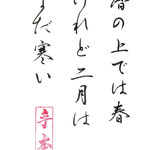 暦の上では春
けれど二月は
まだ寒い